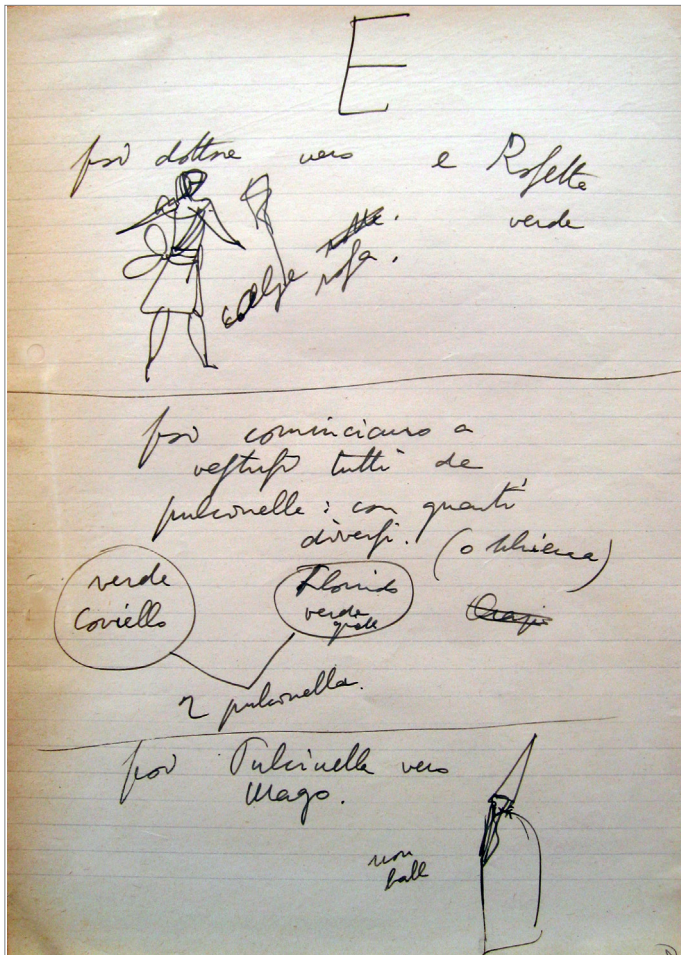 E
poi dottore vero e Rosetta
verde
calze
rosa.
poi cominciano a
vestirsi tutti da
pulcinelle: con guanti
diversi.
verde
Coviello
Florindo
verde
2 pulcinella.
poi Pulcinella vero
Mago.
non
ball